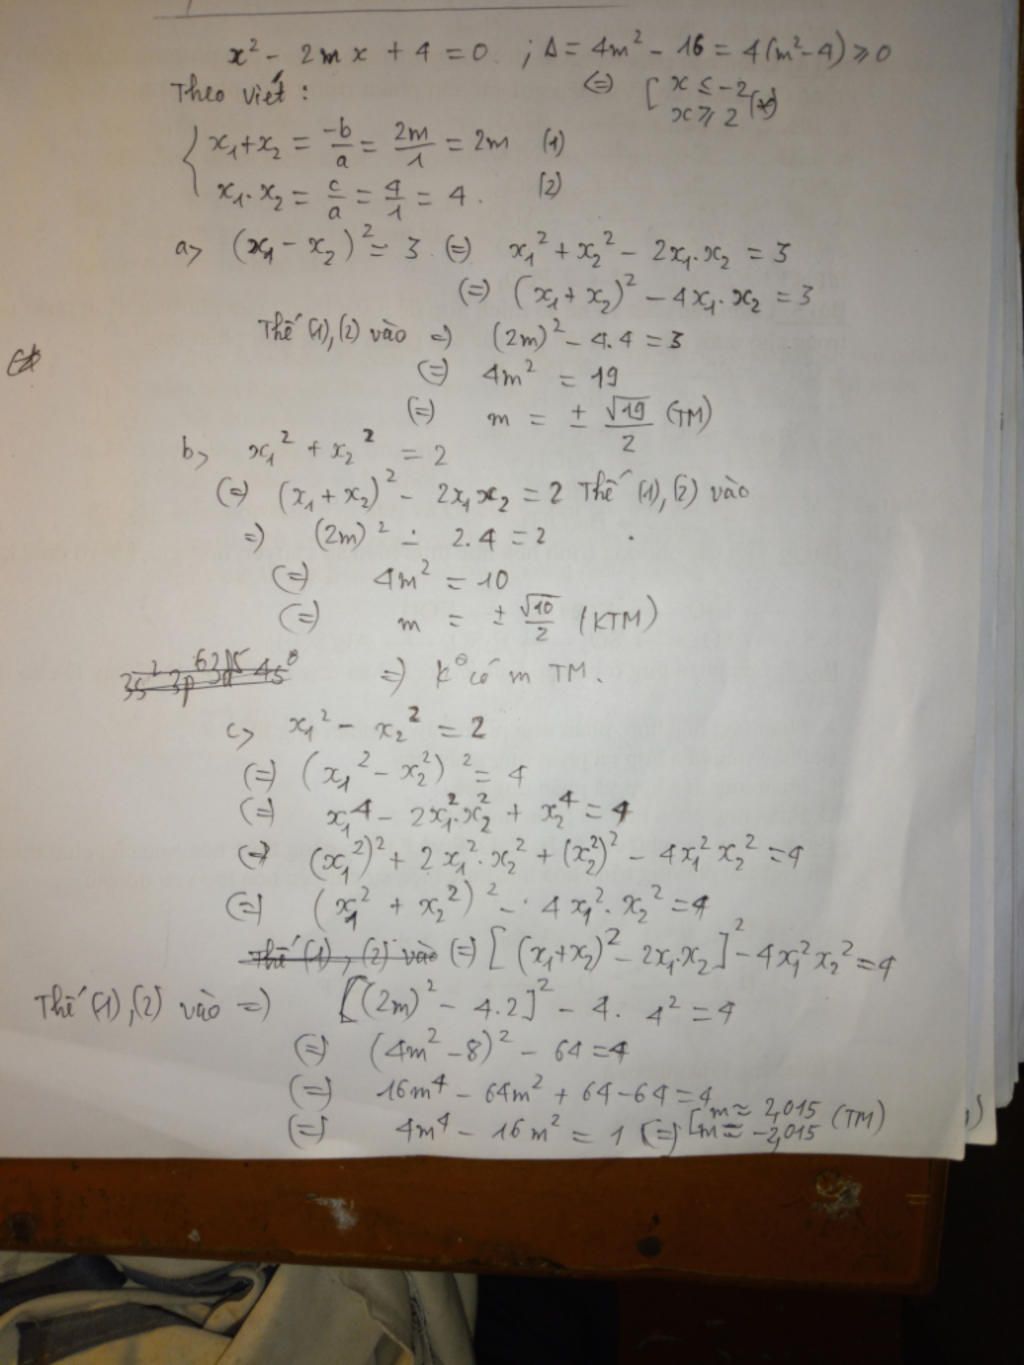 x² - 2mx + 4 = 0. ; Δ = 4m² - 16 = 4(m²-4) ⩾ 0
Theo viét : (=) [ x ≤ -2
x ⩾ 2 (*)
{ x₁+x₂ = -b/a = 2m/1 = 2m (1)
x₁.x₂ = c/a = 4/1 = 4. (2)
a> (x₁ - x₂)² = 3 (=) x₁² + x₂² - 2x₁.x₂ = 3
(=) (x₁ + x₂)² - 4x₁.x₂ = 3
Thế (1),(2) vào =) (2m)² - 4.4 = 3
(=) 4m² = 19
(=) m = ± √19/2 (TM)
b> x₁² + x₂² = 2
(=) (x₁ + x₂)² - 2x₁x₂ = 2 Thế (1),(2) vào
=) (2m)² - 2.4 = 2
(=) 4m² = 10
(=) m = ± √10/2 (KTM)
3s² 3p⁶ 3d⁵ 4s⁰ =) k° có m TM.
c> x₁² - x₂² = 2
(=) (x₁² - x₂²)² = 4
(=) x₁⁴ - 2x₁².x₂² + x₂⁴ = 4
(=) (x₁²)² + 2x₁².x₂² + (x₂²)² - 4x₁²x₂² = 4
(=) (x₁² + x₂²)² - 4x₁².x₂² = 4
Thế (1), (2) vào (=) [(x₁+x₂)² - 2x₁.x₂]² - 4x₁²x₂² = 4
Thế (1),(2) vào =) [(2m)² - 4.2]² - 4. 4² = 4
(=) (4m² - 8)² - 64 = 4
(=) 16m⁴ - 64m² + 64 - 64 = 4
(=) 4m⁴ - 16m² = 1 (=) [ m ≈ 2,015
m ≈ -2,015 (TM)